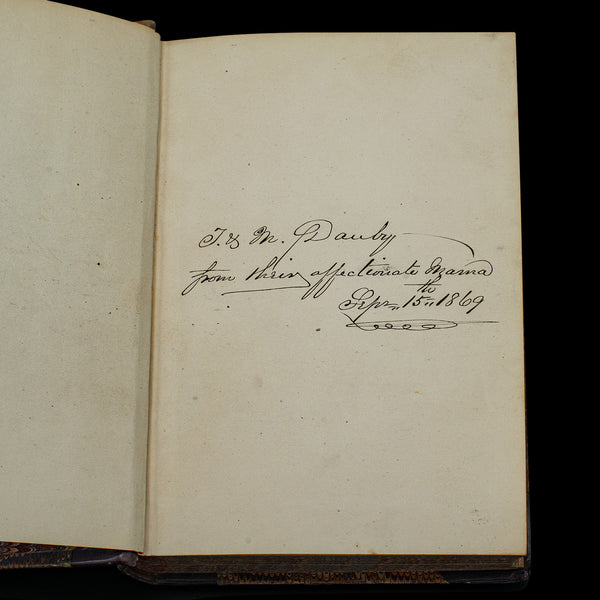 T. & M. Dauby
from their affectionate Mama
Sepr 15th 1869